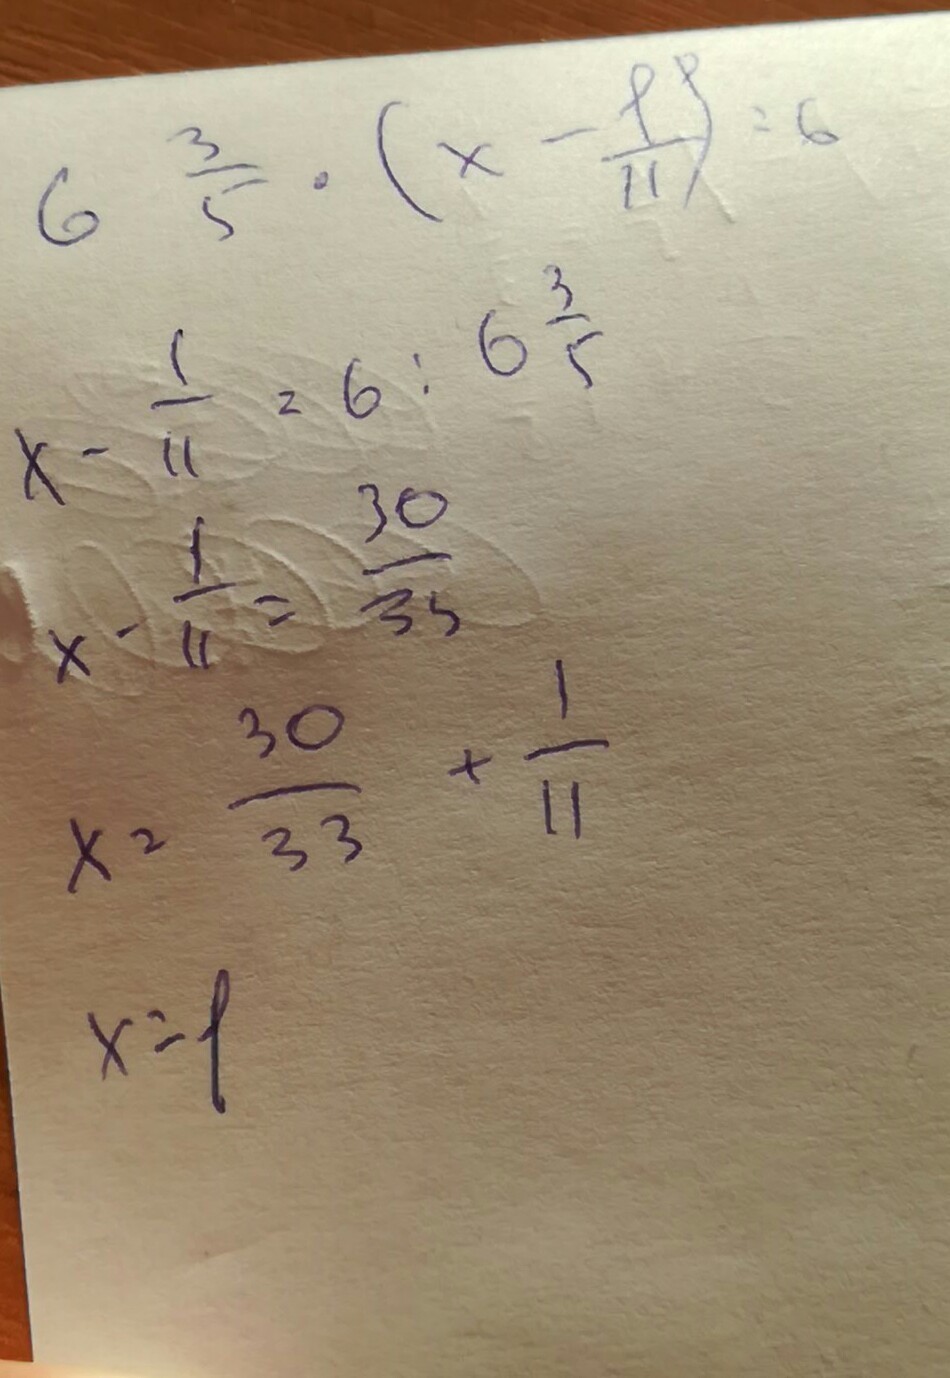 6 3/5 · (x - 1/11) = 6
x - 1/11 = 6 : 6 3/5
x - 1/11 = 30/33
x = 30/33 + 1/11
x = 1